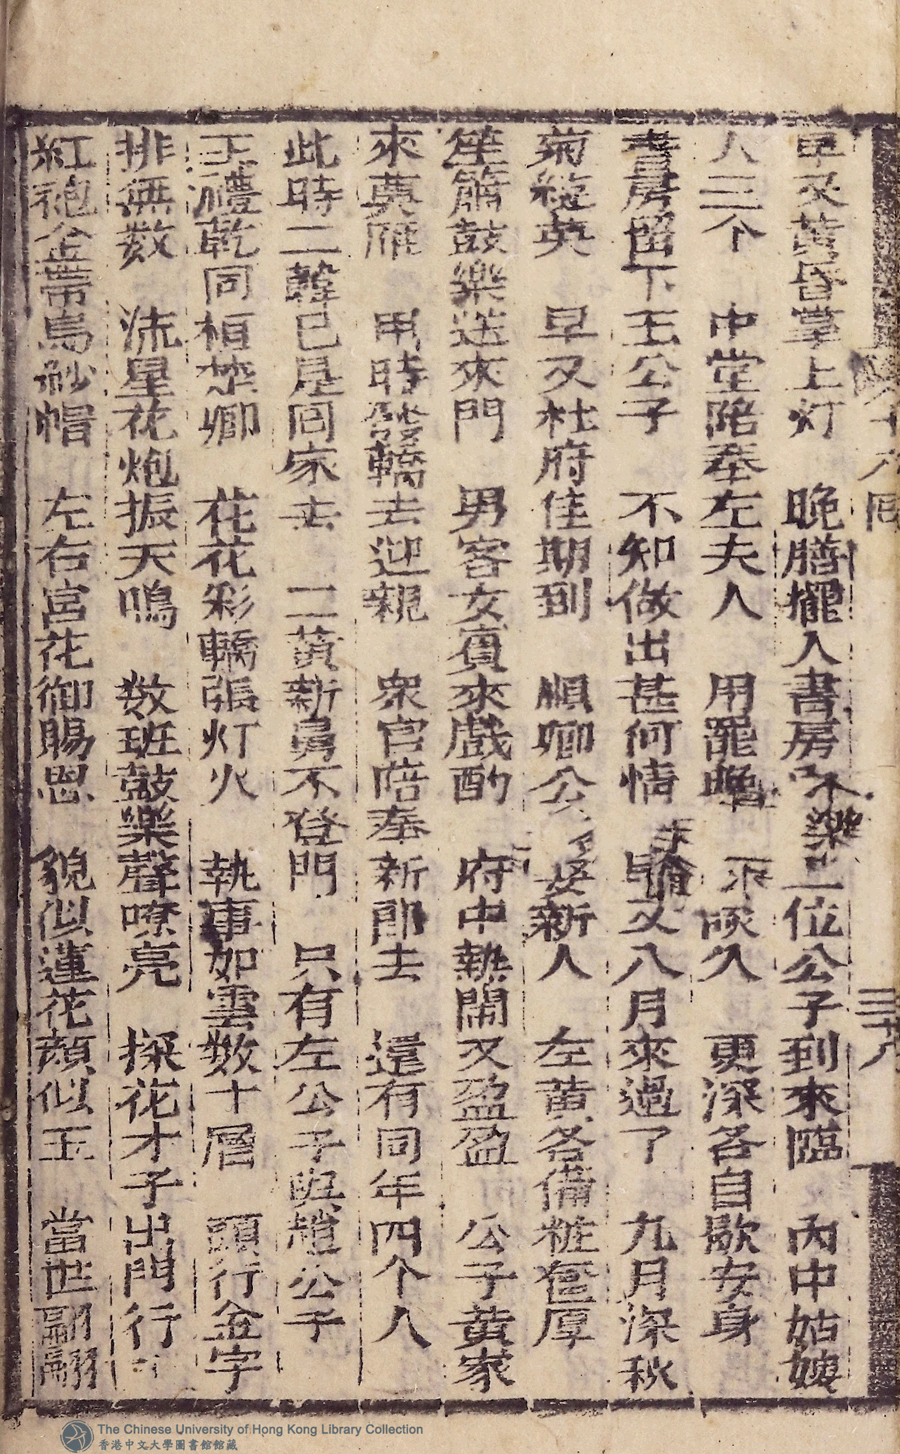 早又黃昏掌上灯　晚膳擺入書房　二位公子到來臨　內中姑嫂
人三个　中堂陪奉左夫人　用罷晚　不敢久　更深各自歇安身
書房留下王公子　不知做出甚何情　早又八月來過了　九月深秋
菊綻英　早又杜府佳期到　順卿公　娶新人　左黃各備粧奩厚
笙簫鼓樂送來門　男客女賓來戲酌　府中熱鬧又盈盈　公子黃家
來奠雁　用時發轎去迎親　衆官陪奉新郎去　還有同年四个人
此時二韓已是回家去　二黃新舅不登門　只有左公子與趙公子
王禮乾同桓楚卿　花花彩轎張灯火　執事如雲数十層　頭行金字
排無数　流星花炮振天鳴　数班鼓樂聲嘹亮　探花才子出門行
紅袍金帶烏紗帽　左右宮花御賜恩　貌似蓮花顔似玉　當世翩翩
The Chinese University of Hong Kong Library Collection
香港中文大學圖書館館藏